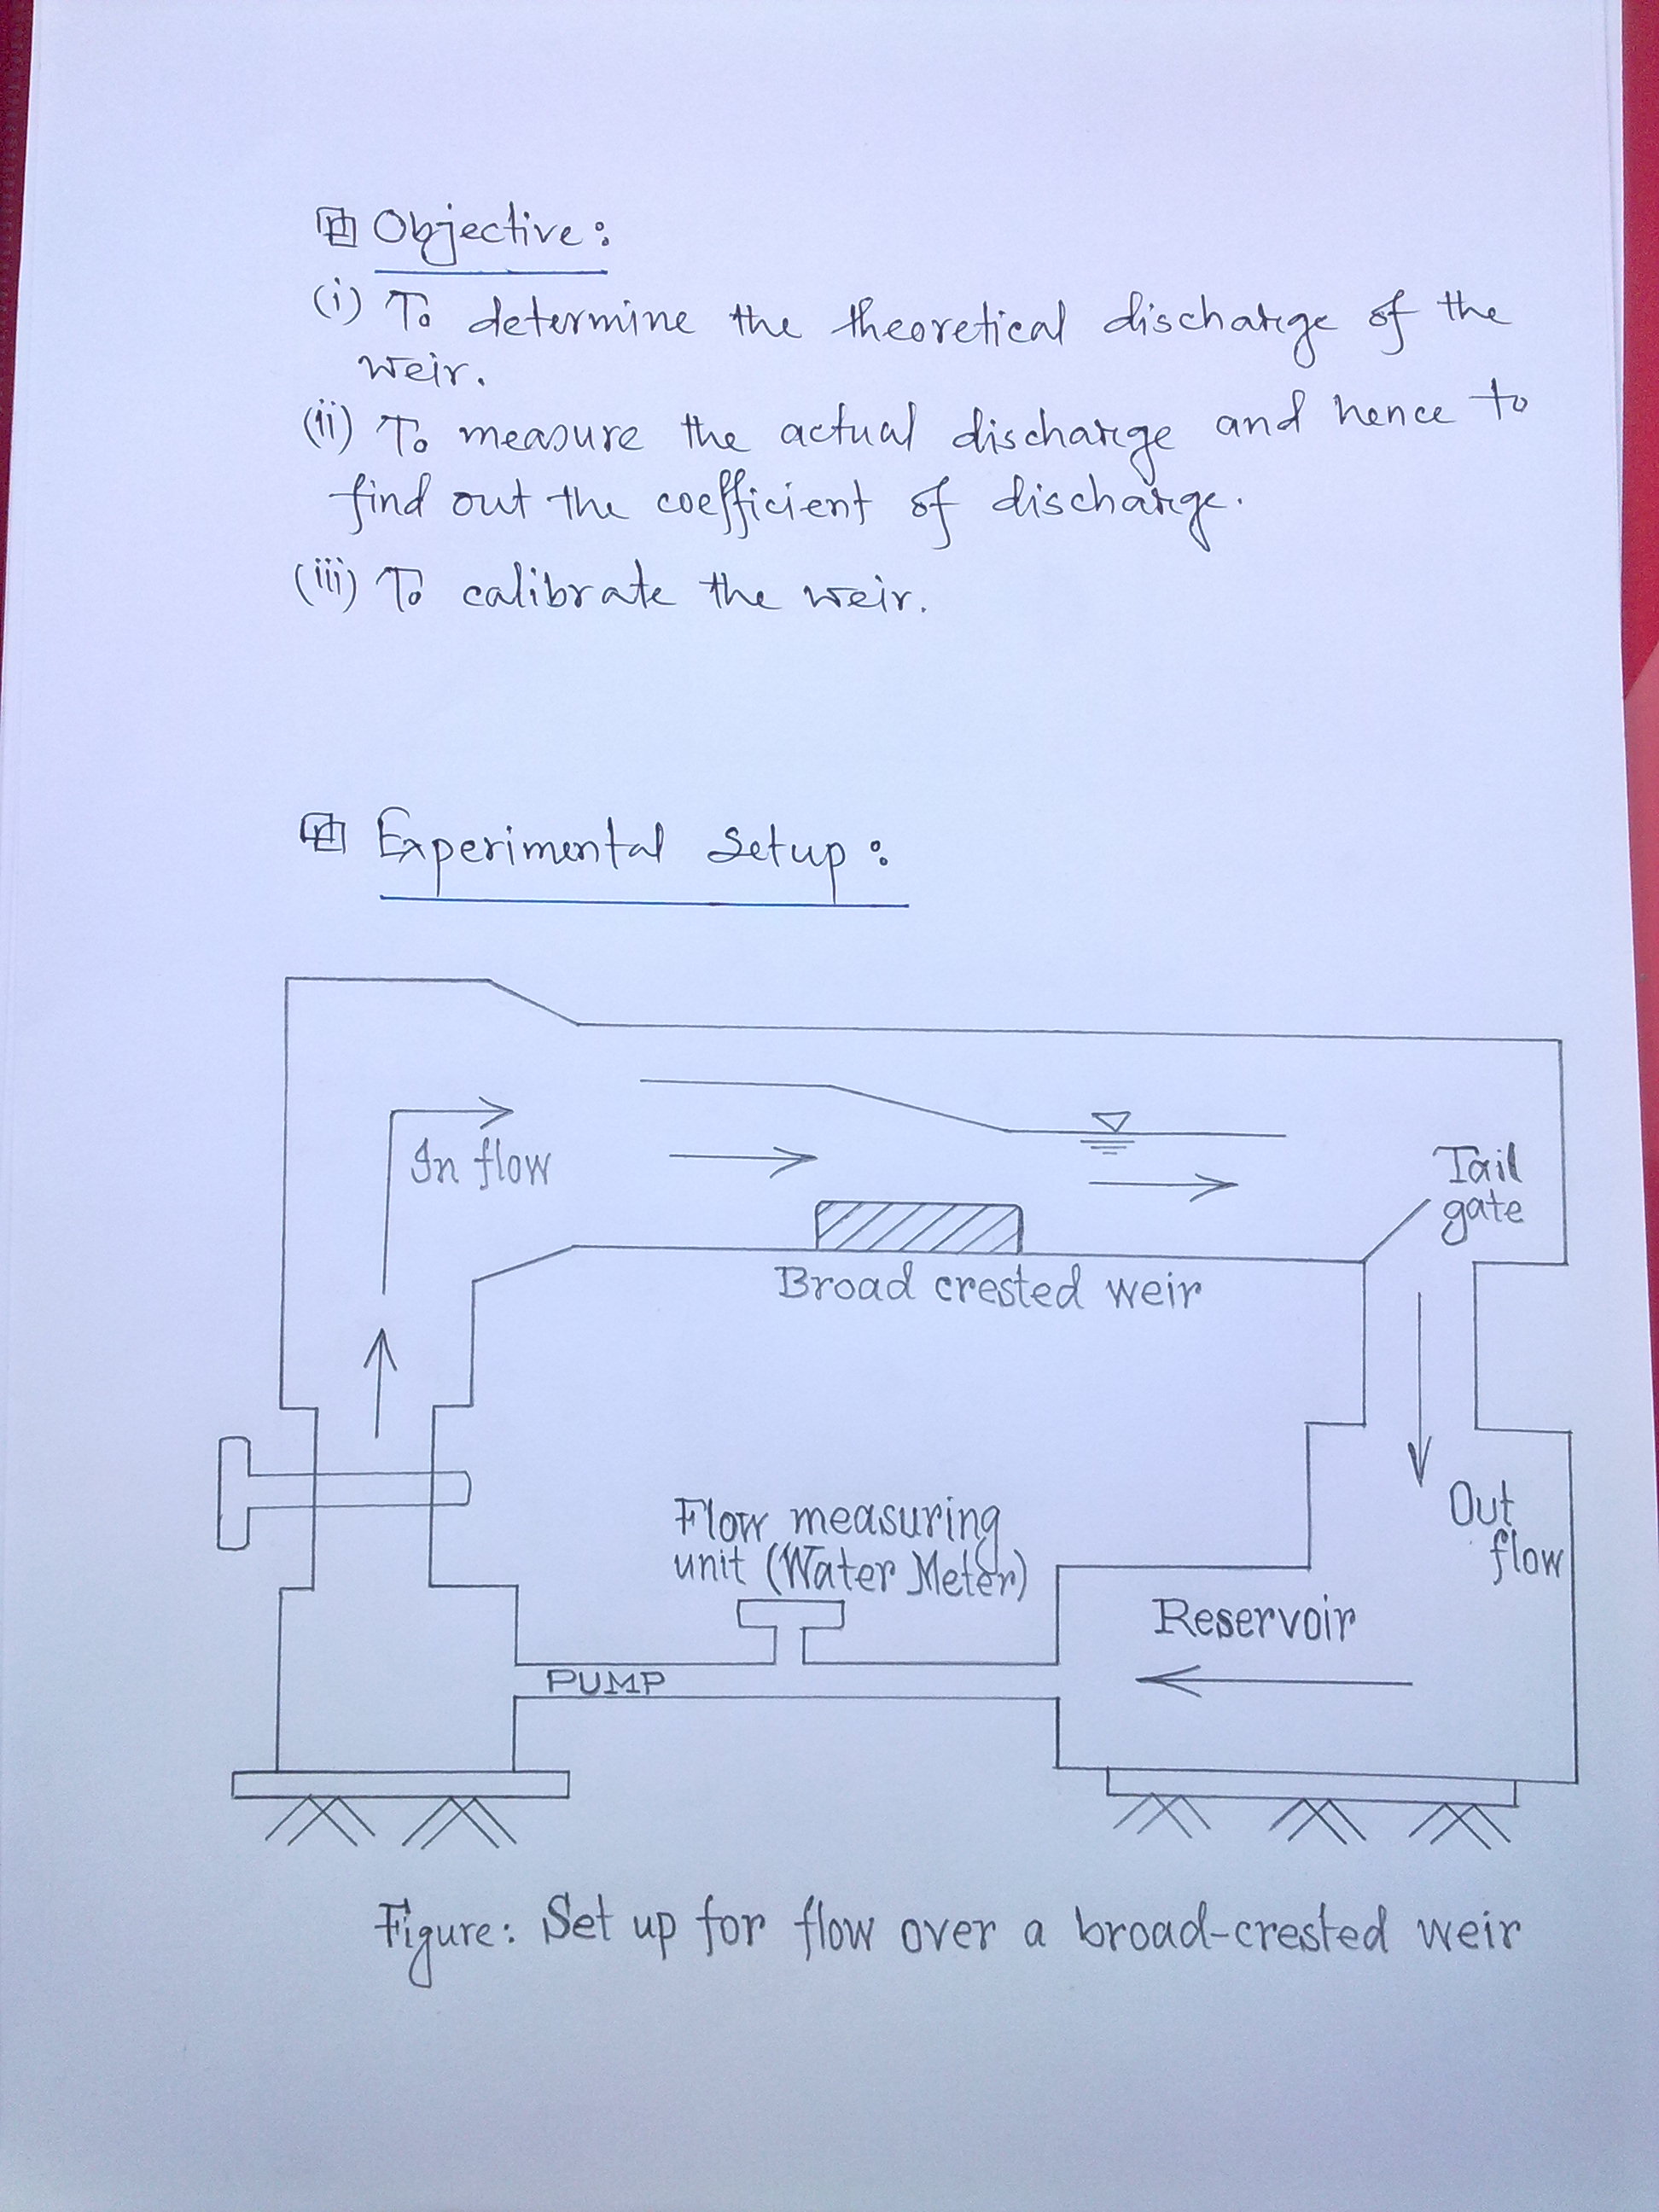 Objective:
(i) To determine the theoretical discharge of the
weir.
(ii) To measure the actual discharge and hence to
find out the coefficient of discharge.
(iii) To calibrate the weir.
Experimental Setup:
In flow
Tail
gate
Broad crested weir
Flow measuring
unit (Water Meter)
Out
flow
Reservoir
PUMP
Figure: Set up for flow over a broad-crested weir